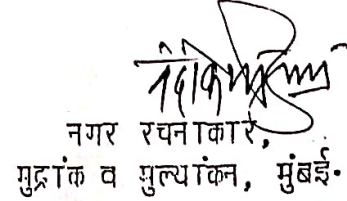 नगर रचनाकार,
मुद्रांक व मुल्यांकन, मुंबई.